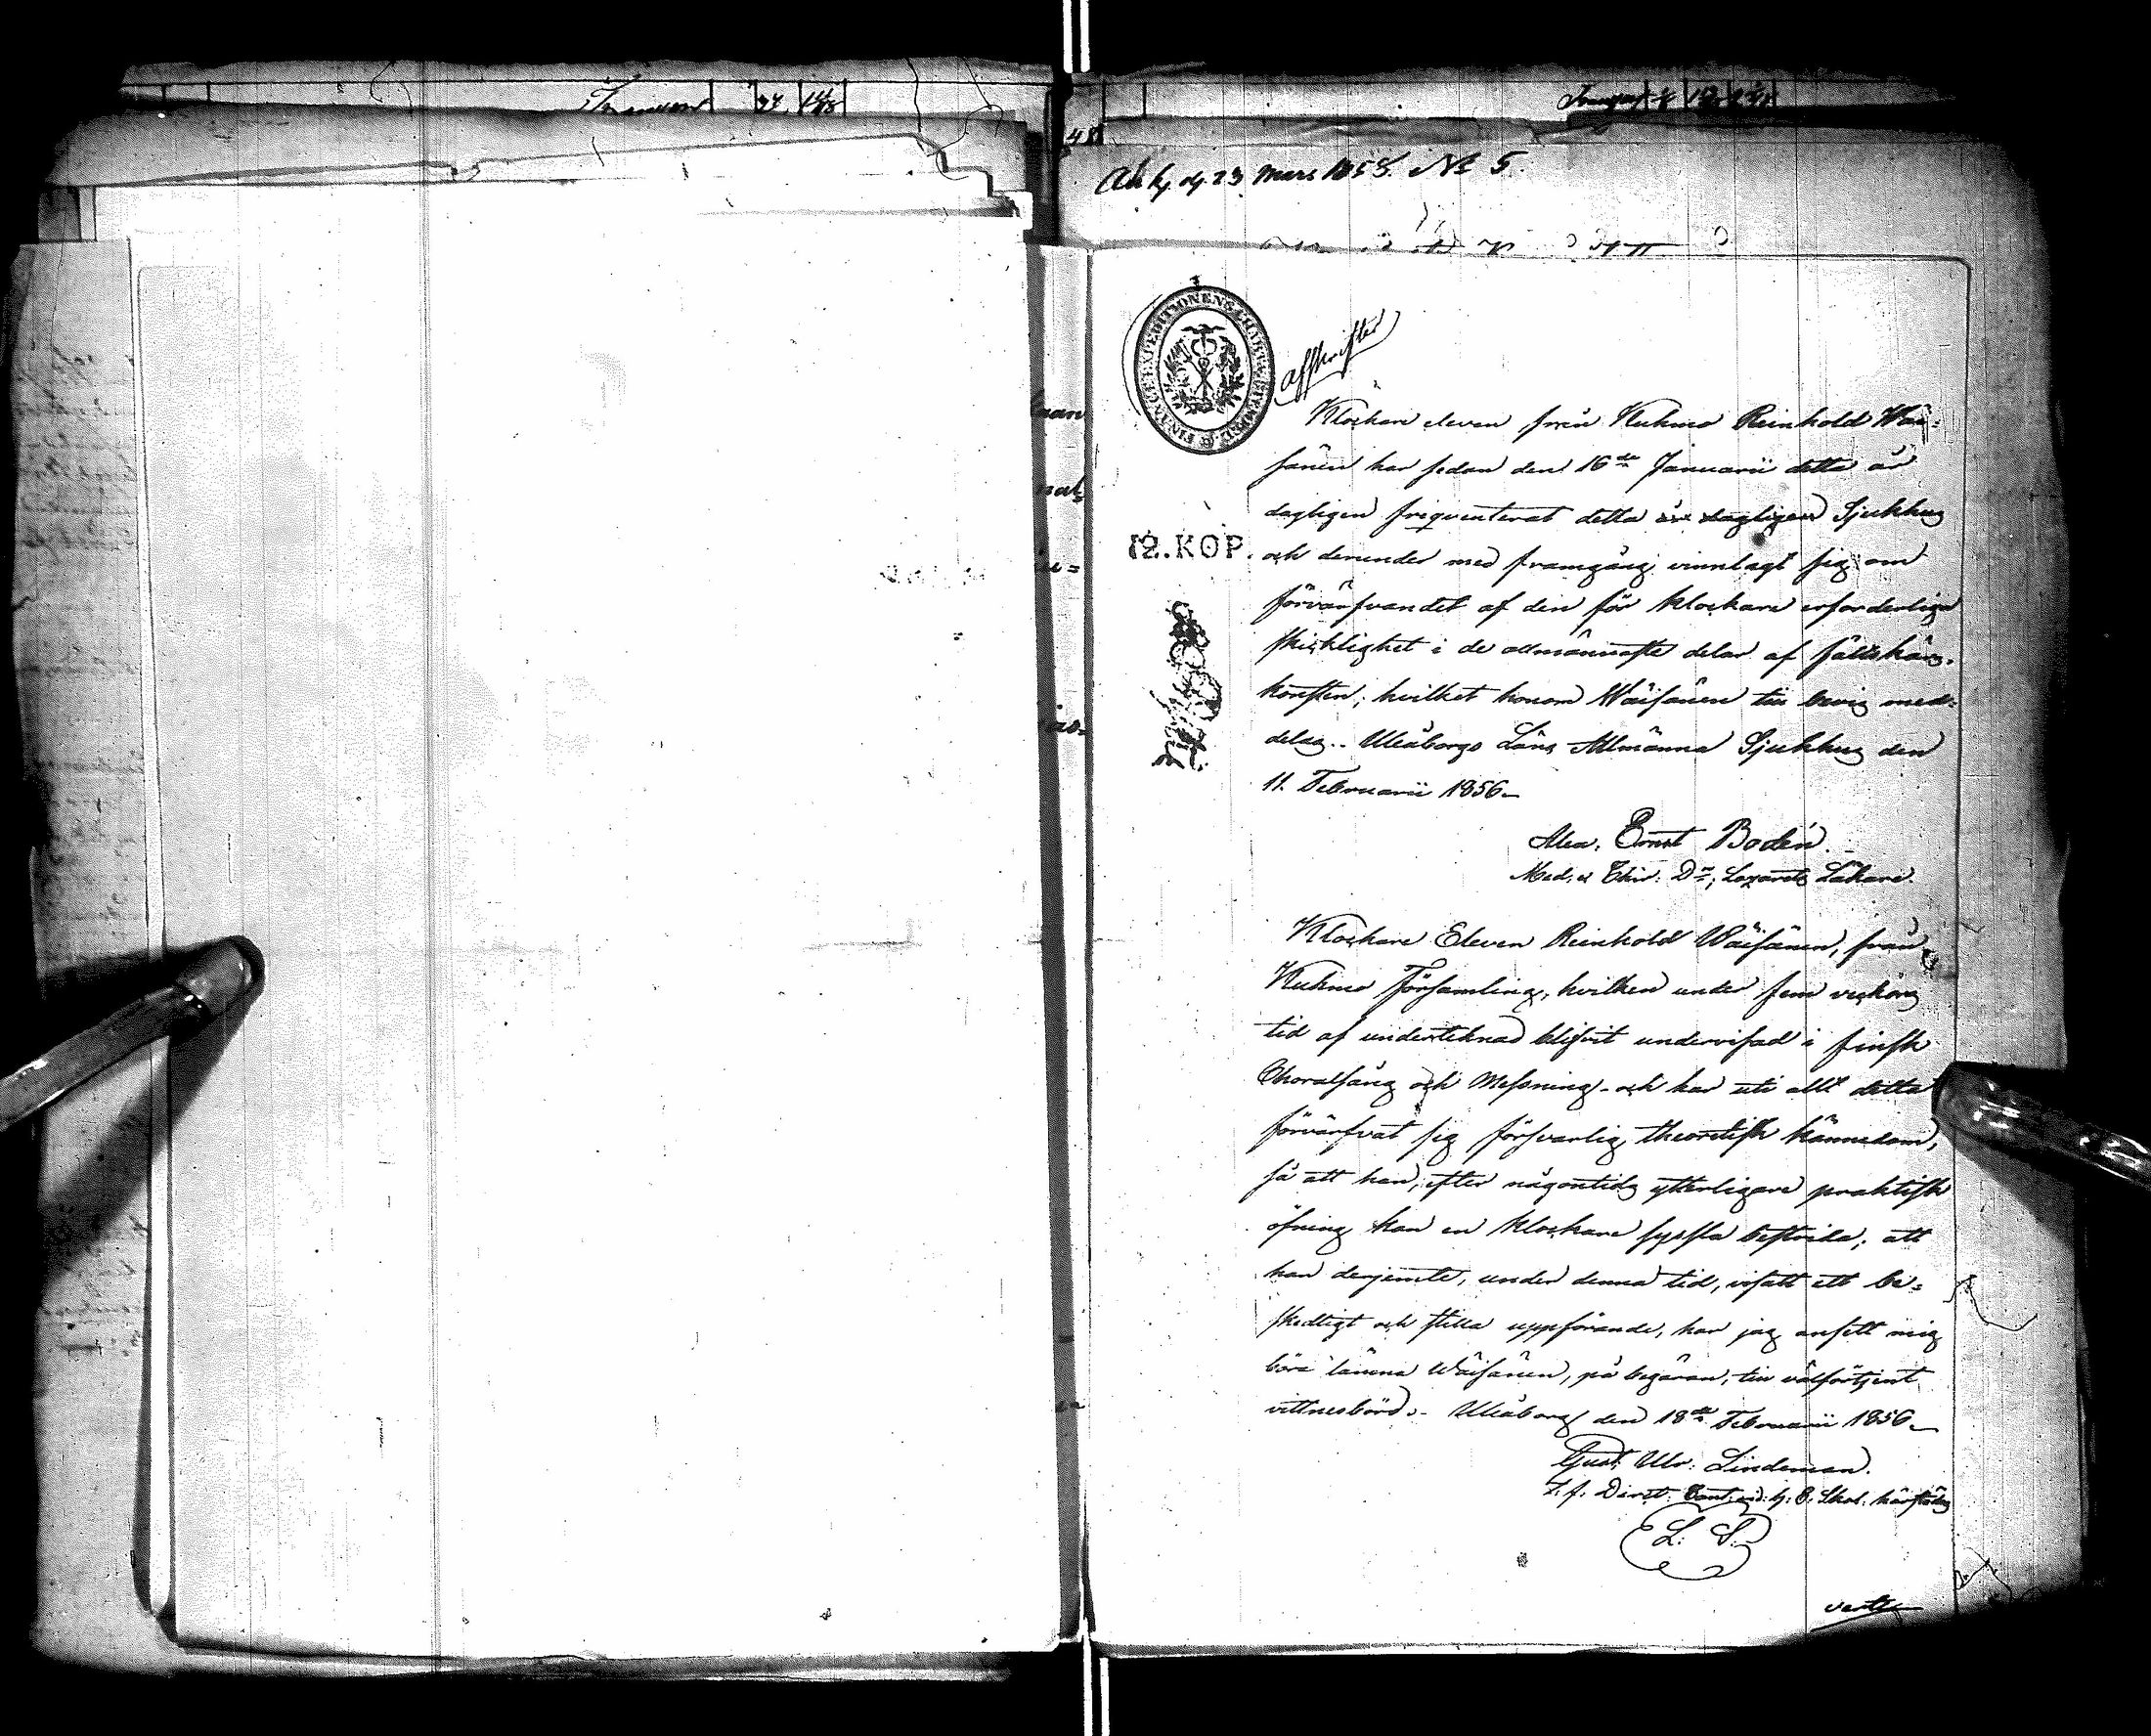 Ank. d. 23 Mars 1858. № 5.
affskrifter
FINANCE EXPEDITIONENS CHARTÆ
12. KOP.
Klockare eleven från Kuhmo Reinhold Wäi=
sänen har sedan den 16de Januarii detta år
dagligen frequenterat detta år dagligen Sjukhus
och derunder med framgång vinnlagt sig om
förvärfvandet af den för klockare erforderliga
skicklighet i de allmännaste delar af fältskärs-
konsten; hvilket honom Wäisänen till bevis med-
delas.. Uleåborgs Läns Allmänna Sjukhus den
11. Februarii 1856
Alex. Ernst Bodén.
Med: et Chir: Dr, Lazaretts Läkare.
Klockare Eleven Reinhold Wäisänen, från
Kuhmo Församling, hvilken under fem veckors
tid af undertecknad blifvit undervisad i finsk
Choralsång och Messning - och har uti allt detta
förvärfvat sig försvarlig theoretisk kännedom,
så att han, efter någontids ytterligare praktisk
öfning kan en klockare syssla bestrida; att
han derjemte, under denna tid, visatt ett be=
skedligt och stilla uppförande, har jag ansett mig
böra lämna Wäisänen, på begäran, till välförtjent
vittnesbörd. - Uleåborg den 18de Februarii 1856
Gust. Ulr: Lindeman.
T. f. Direct: Cant: vid h: E. Skol: härstädes
L. S.
vertte